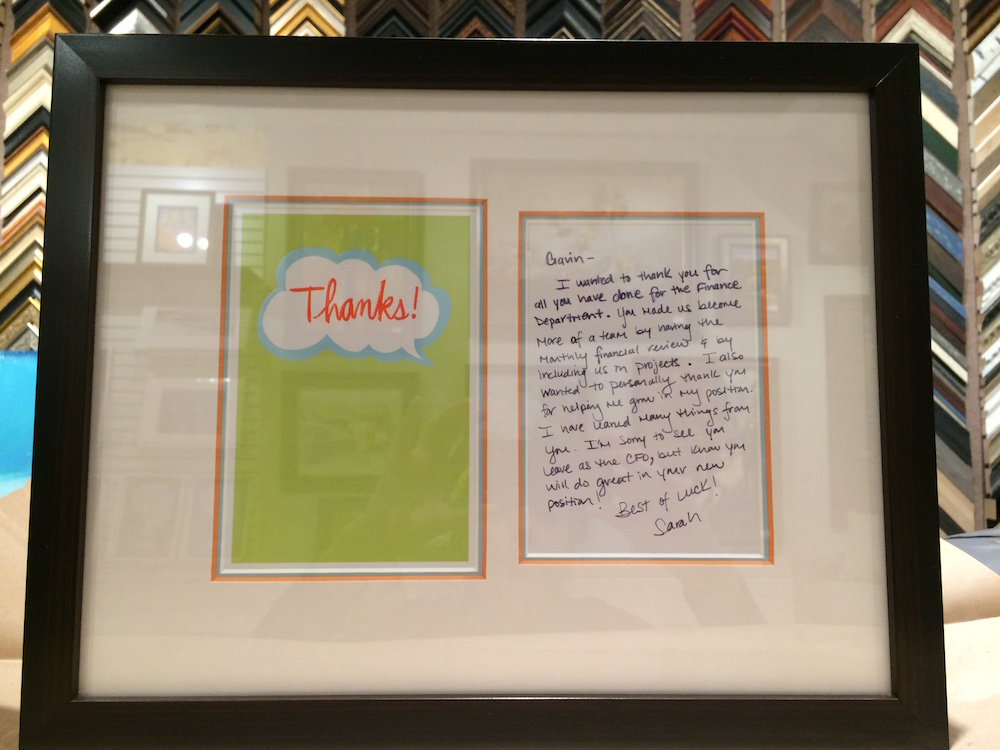 Thanks!
Gavin-
I wanted to thank you for
all you have done for the Finance
Department. You made us become
more of a team by having the
monthly financial review & by
including us in projects. I also
wanted to personally thank you
for helping me grow in my position.
I have learned many things from
you. I'm sorry to see you
leave as the CFO, but know you
will do great in your new
position! Best of Luck!
Sarah